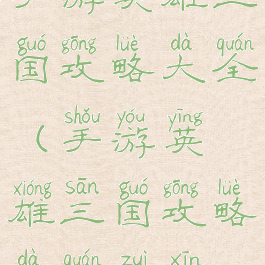 guó gōng lüè dà quán
国攻略大全
shǒu yóu yīng
（手游英
xióng sān guó gōng lüè
雄三国攻略
dà quán zuì xīn